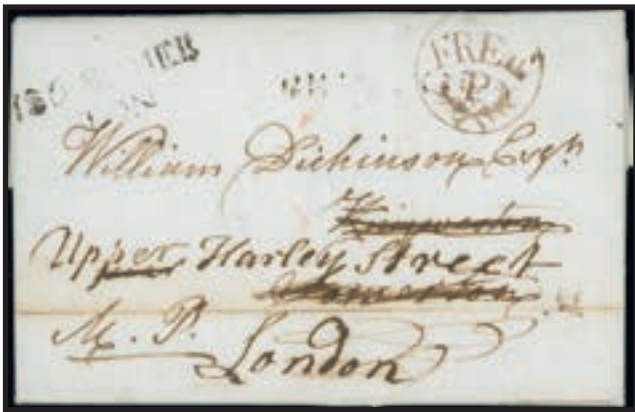 FREE
P
William Dickinson Esqr.
Kingweston
Upper Harley Street
Somerton
M. P.
London